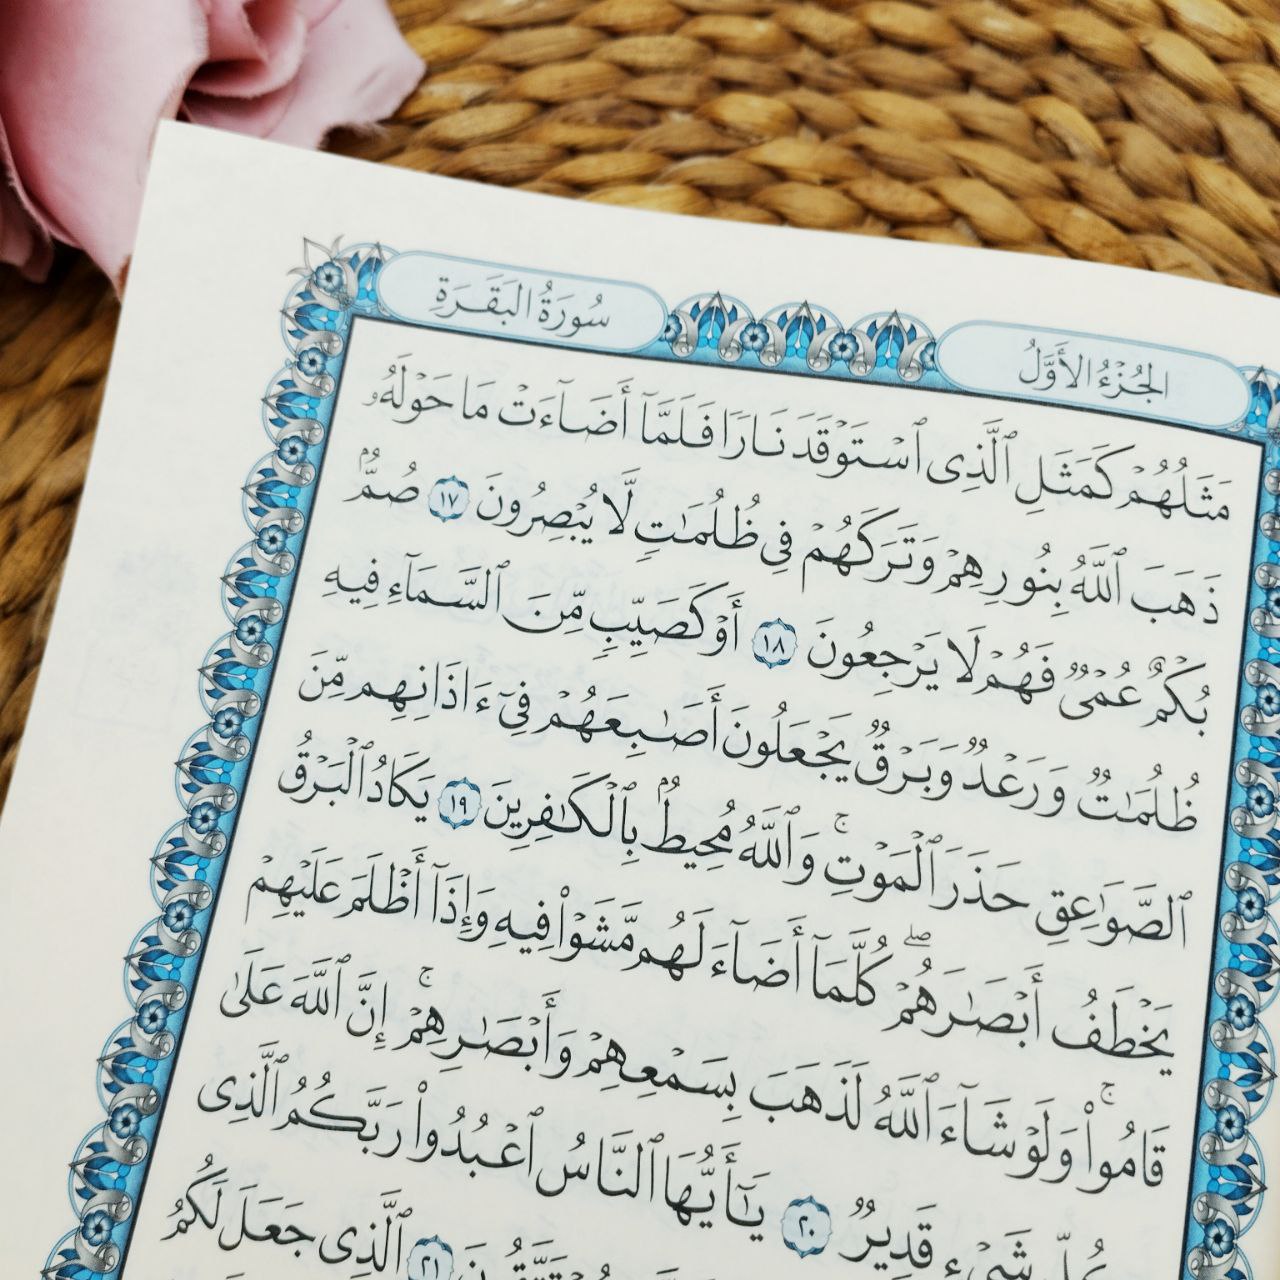 الجُزْءُ الأَوَّلُ
سُورَةُ البَقَرَةِ
مَثَلُهُمْ كَمَثَلِ ٱلَّذِى ٱسْتَوْقَدَ نَارًا فَلَمَّآ أَضَآءَتْ مَا حَوْلَهُۥ
ذَهَبَ ٱللَّهُ بِنُورِهِمْ وَتَرَكَهُمْ فِى ظُلُمَٰتٍ لَّا يُبْصِرُونَ ١٧ صُمٌّۢ
بُكْمٌ عُمْىٌ فَهُمْ لَا يَرْجِعُونَ ١٨ أَوْ كَصَيِّبٍ مِّنَ ٱلسَّمَآءِ فِيهِ
ظُلُمَٰتٌ وَرَعْدٌ وَبَرْقٌ يَجْعَلُونَ أَصَٰبِعَهُمْ فِىٓ ءَاذَانِهِم مِّنَ
ٱلصَّوَٰعِقِ حَذَرَ ٱلْمَوْتِ ۚ وَٱللَّهُ مُحِيطٌۢ بِٱلْكَٰفِرِينَ ١٩ يَكَادُ ٱلْبَرْقُ
يَخْطَفُ أَبْصَٰرَهُمْ ۖ كُلَّمَآ أَضَآءَ لَهُم مَّشَوْا۟ فِيهِ وَإِذَآ أَظْلَمَ عَلَيْهِمْ
قَامُوا۟ ۚ وَلَوْ شَآءَ ٱللَّهُ لَذَهَبَ بِسَمْعِهِمْ وَأَبْصَٰرِهِمْ ۚ إِنَّ ٱللَّهَ عَلَىٰ
كُلِّ شَىْءٍ قَدِيرٌ ٢٠ يَٰٓأَيُّهَا ٱلنَّاسُ ٱعْبُدُوا۟ رَبَّكُمُ ٱلَّذِى
٢١ ٱلَّذِى جَعَلَ لَكُمُ